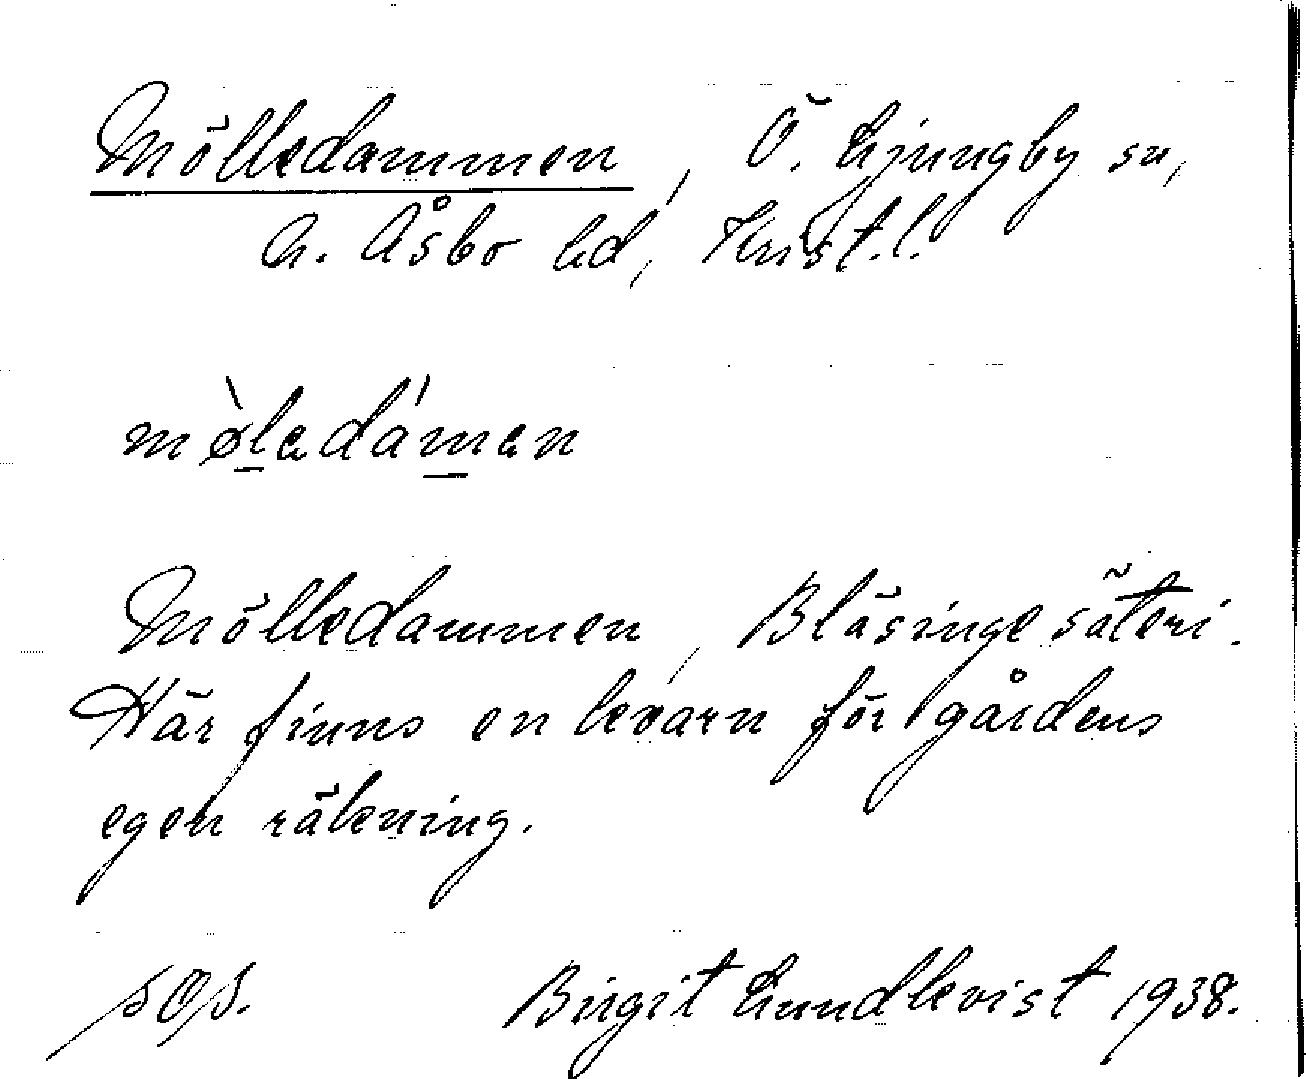 Mölledammen, Ö. Ljungby sn,
N. Åsbo hd, Krist.l.
mø̀ledámen
Mölledammen, Bläsinge säteri.
Här finns en kvarn för gårdens
egen räkning.
Birgit Lundkvist 1938.